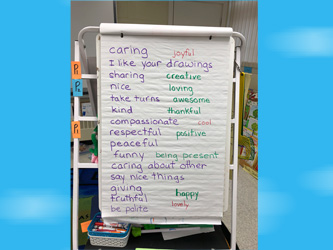 caring joyful
I like your drawings
sharing creative
nice loving
take turns awesome
kind thankful
compassionate cool
respectful positive
peaceful
funny being present
caring about other
say nice things
giving
truthful happy
be polite lovely